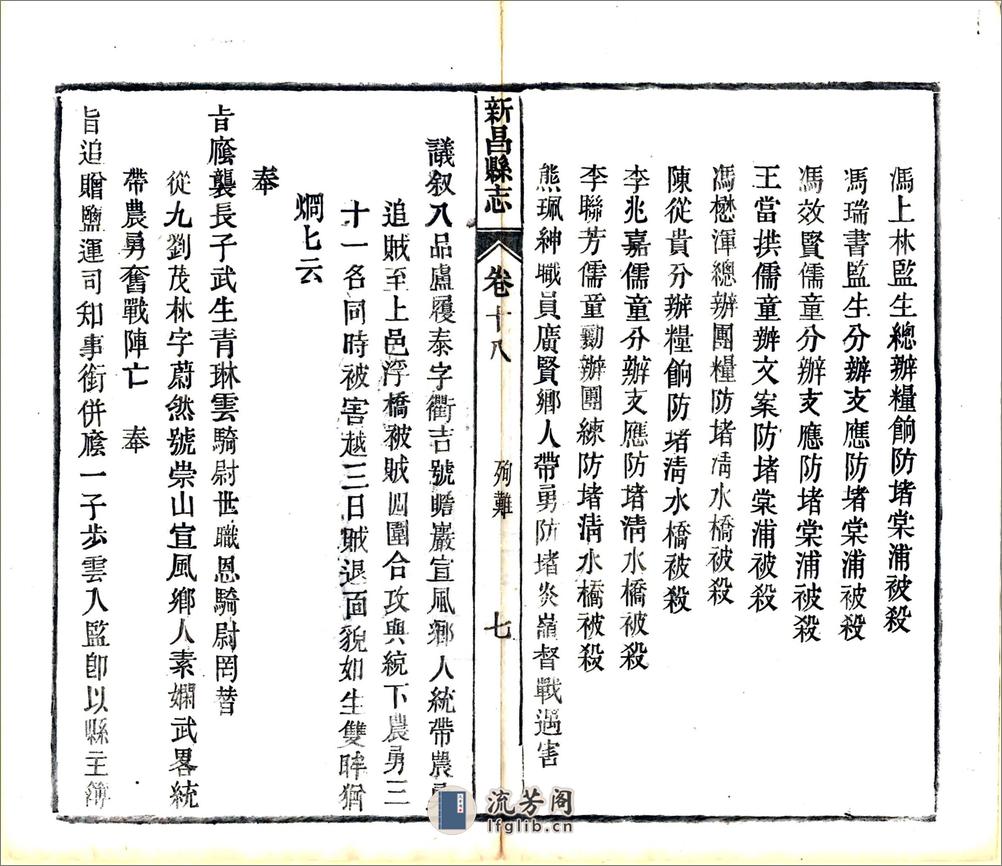 馮上林監生總辦糧餉防堵棠浦被殺
馮瑞書監生分辦支應防堵棠浦被殺
馮效賢儒童分辦支應防堵棠浦被殺
王當拱儒童辦文案防堵棠浦被殺
馮懋渾總辦團糧防堵清水橋被殺
陳從貴分辦糧餉防堵清水橋被殺
李兆嘉儒童分辦支應防堵清水橋被殺
李聯芳儒童勷辦團練防堵清水橋被殺
熊珮紳職員廣賢鄉人帶勇防堵炎嶺督戰遇害
新昌縣志
卷十八
殉難
七
議叙八品盧履泰字衢吉號瞻巖宣風鄉人統帶農勇
追賊至上邑浮橋被賊四圍合攻與統下農勇三
十一名同時被害越三日賊退面貌如生雙眸猶
烱七云
奉
旨廕襲長子武生青琳雲騎尉世職恩騎尉罔替
從九劉茂林字蔚然號崇山宣風鄉人素嫻武畧統
帶農勇奮戰陣亡 奉
旨追贈鹽運司知事銜併廕一子步雲入監卽以縣主簿
流芳閣
lfglib.cn